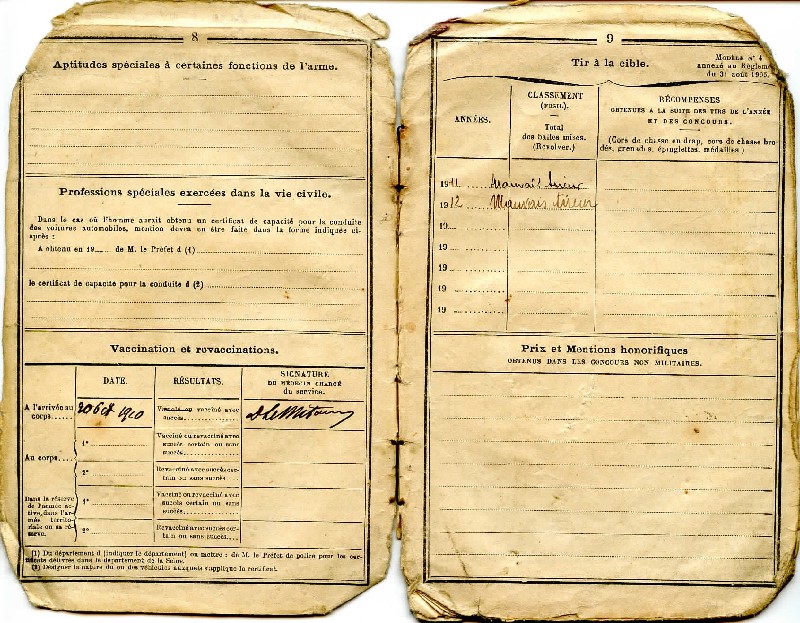 8
Aptitudes spéciales à certaines fonctions de l'arme.
Professions spéciales exercées dans la vie civile.
Dans le cas où l'homme aurait obtenu un certificat de capacité pour la conduite
des voitures automobiles, mention devra en être faite dans la forme indiquée ci-
après :
A obtenu en 19...... de M. le Préfet d (1)
le certificat de capacité pour la conduite d (2)
Vaccination et revaccinations.
DATE.
RÉSULTATS.
SIGNATURE
DU MÉDECIN CHARGÉ
du service.
A l'arrivée au
corps......
20 6 1910
Vacciné ou vacciné avec
succès
Au corps....
1°
Vacciné ou revacciné avec
succès certain ou sans
succès
2°
Revacciné avec succès cer-
tain ou sans succès
Dans la réserve
de l'armée ac-
tive, dans l'ar-
mée territo-
riale ou sa ré-
serve.
1°
Vacciné ou revacciné avec
succès certain ou sans
succès
2°
Revacciné avec succès cer-
tain ou sans succès
(1) Du département d [indiquer le département] ou mettre : de M. le Préfet de police pour les cer-
tificats délivrés dans le département de la Seine.
(2) Désigner la nature du ou des véhicules auxquels s'applique le certificat.
9
Tir à la cible.
Modèle n° 4
annexé au Règlem
du 31 août 1905.
ANNÉES.
CLASSEMENT
(FUSIL).
Total
des balles mises.
(Revolver.)
RÉCOMPENSES
OBTENUES A LA SUITE DES TIRS DE L'ANNÉE
ET DES CONCOURS.
(Cors de chasse en drap, cors de chasse bro-
dés, grenades, épinglettes, médailles.)
1911 Mauvais tireur
1912 Mauvais tireur
19
19
19
19
Prix et Mentions honorifiques
OBTENUS DANS LES CONCOURS NON MILITAIRES.